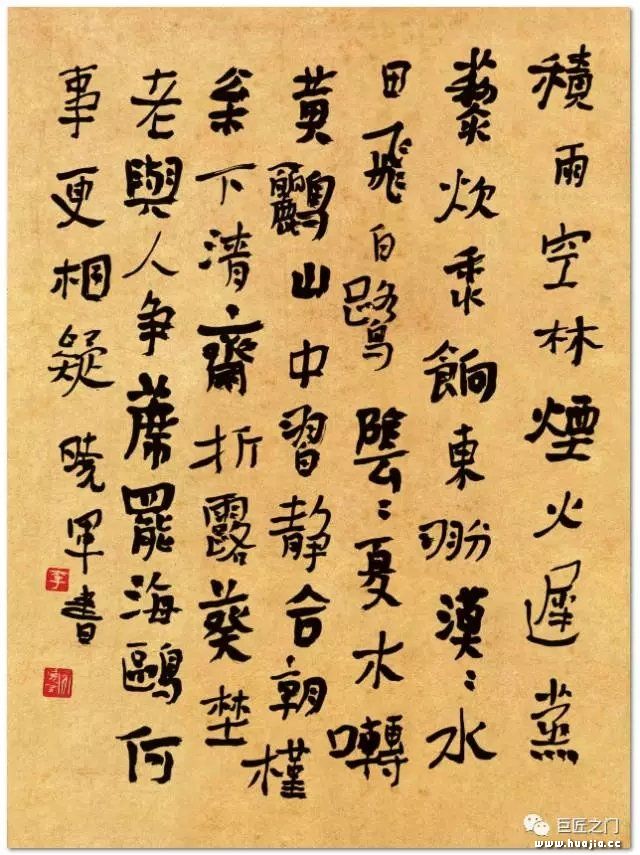 積雨空林煙火遲蒸
藜炊黍餉東翂漠〻水
田飛白鷺陰〻夏木囀
黃鸝山中習靜合朝槿
枀下清齋折露葵埜
老與人爭蓆罷海鷗何
事更相疑 曉軍書
李
巨匠之门
www.huajia.cc